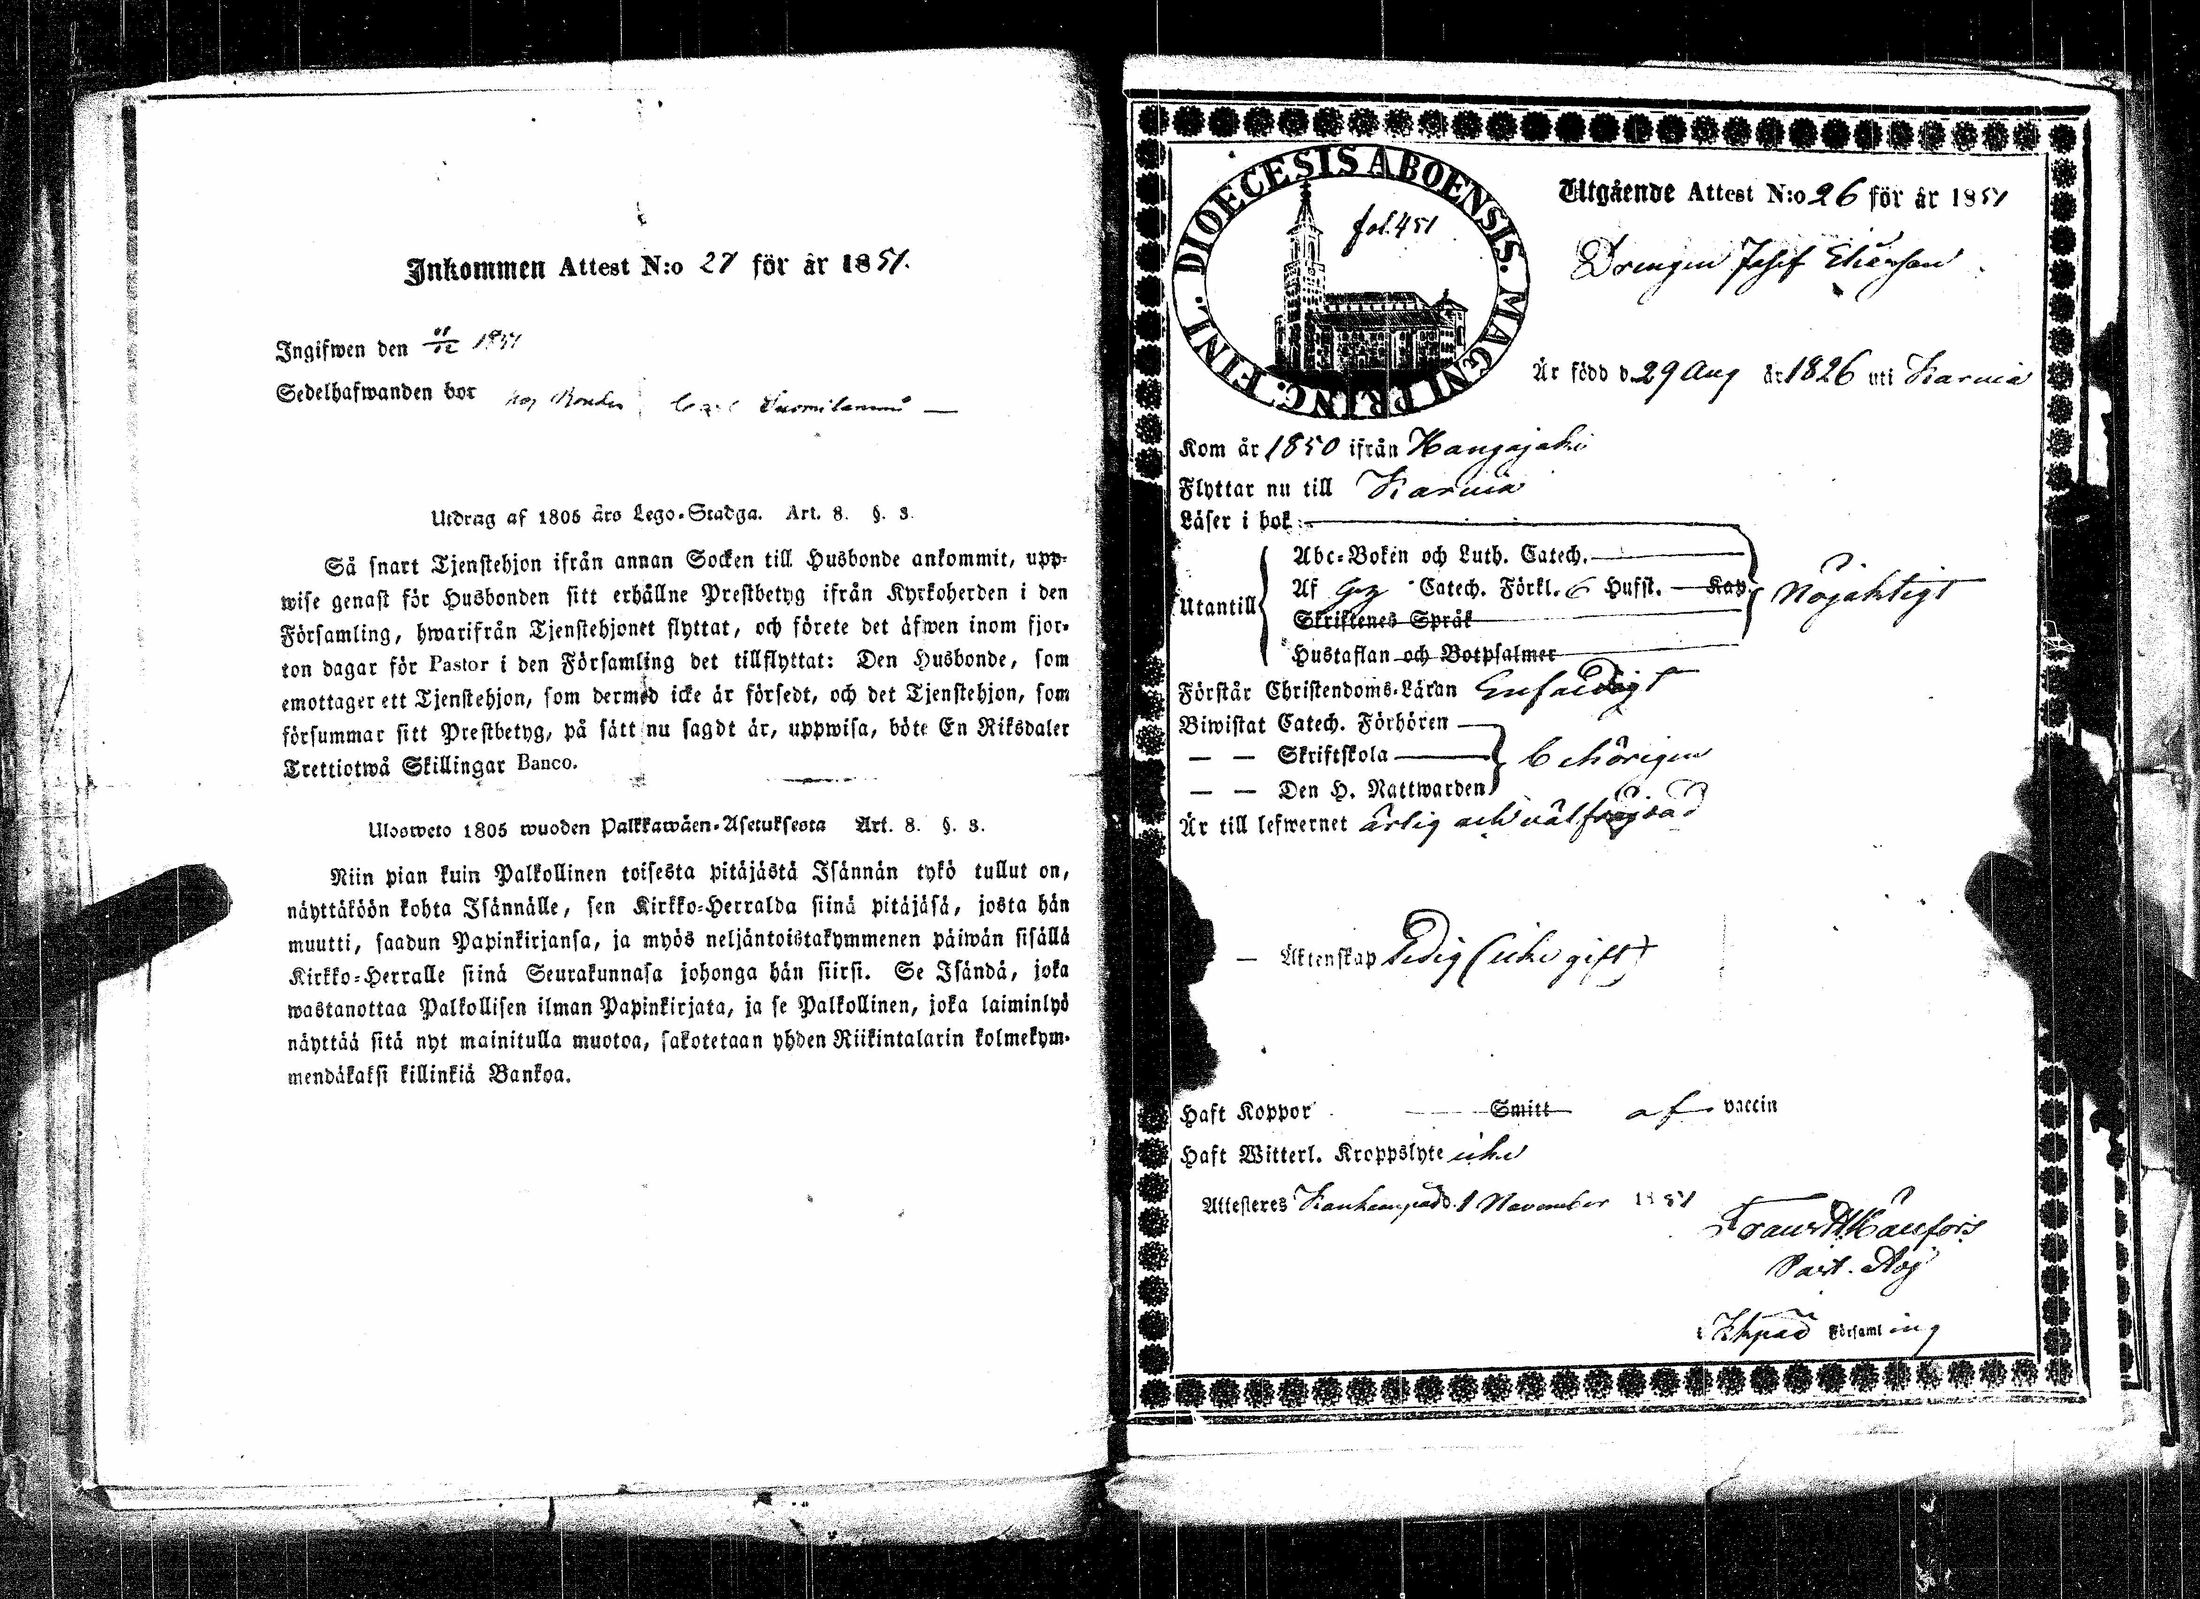 Inkommen Attest N:o 27 för år 1851.
Ingifwen den 11/12 1851
Sedelhafwanden bor hos Bonden
Utdrag af 1805 års Lego-Stadga. Art. 8. §. 3.
Så snart Tjenstehjon ifrån annan Socken till Husbonde ankommit, upp-
wise genast för Husbonden sitt erhållne Prestbetyg ifrån Kyrkoherden i den
Församling, hwarifrån Tjenstehjonet flyttat, och förete det äfwen inom fjor-
ton dagar för Pastor i den Församling det tillflyttat: Den Husbonde, som
emottager ett Tjenstehjon, som dermed icke är försedt, och det Tjenstehjon, som
försummar sitt Prestbetyg, på sätt nu sagdt är, uppwisa, böte En Riksdaler
Trettiotwå Skillingar Banco.
Ulosweto 1805 wuoden Palkkawäen-Asetuksesta Art. 8. §. 3.
Niin pian kuin Palkollinen toisesta pitäjästä Isännän tykö tullut on,
näyttäköön kohta Isännälle, sen Kirkko-Herralda siinä pitäjäsä, josta hän
muutti, saadun Papinkirjansa, ja myös neljäntoistakymmenen päiwän sisällä
Kirkko-Herralle siinä Seurakunnasa johonga hän siirsi. Se Isändä, joka
wastanottaa Palkollisen ilman Papinkirjata, ja se Palkollinen, joka laiminlyö
näyttää sitä nyt mainitulla muotoa, sakotetaan yhden Riikintalarin kolmekym-
mendäkaksi killinkiä Bankoa.
DIOECESIS ABOENSIS. MAGNI PRINC. FINL.
fol. 451
Utgående Attest N:o 26 för år 1851
Drengen Josif Eliasson
Är född d. 29 Aug år 1826 uti Karvia
Kom år 1850 ifrån Kangajoki
Flyttar nu till Karvia
Läser i bok
Abc-Boken och Luth. Catech.
Utantill
Af Catech. Förkl. 6 Hufst. Kap.
Skriftenes Språk
Hustaflan och Botpsalmer
Nöjaktigt
Förstår Christendoms-Läran Enfaldigt
Biwistat Catech. Förhören
— — Skriftskola
behörigen
— — Den H. Nattwarden
Är till lefwernet ärlig och välfräjdad
— Äktenskap Ledig (icke gift)
Haft Koppor Smitt af vaccin
Haft Witterl. Kroppslyte icke
Attesteres Kankaanpää d. 1 November 1851
Past. Adj
i Kkpää Församling